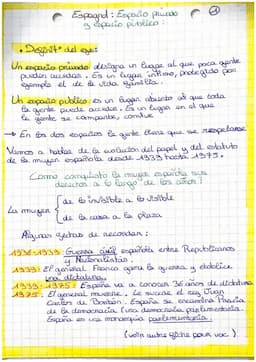 Espagnol : Espacio privado
y espacio público :
• Definit° del eje :
Un espacio privado designa un lugar al que poca gente
pueden acceder. Es un lugar íntimo, protegido por
ejemplo el de la vida familia.
Un espacio público es un lugar abierto al que toda
la gente puede acceder. Es un lugar en el que
la gente se comparte, convive
→ En los dos espacios la gente tiene que se respetarse
Vamos a hablar de la evolución del papel y del estatuto
de la mujer española desde 1939 hasta 1975.
Como conquistó la mujer española sus
derechos a lo largo de los años ?
La mujer
de lo invisible a lo visible
de la casa a la plaza
Algunas fechas de recordar :
1936-1939 Guerra civil española entre Republicanos
y Nacionalistas.
1939 : El general Franco gana la guerra y establece
una dictadura.
1939-1975 : España va a conocer 36 años de dictadura
1975 : El general muere. Le sucede el rey Juan
Carlos de Borbón. España se encamina hacia
la democracia (una democracia parlamentaria.
España es una monarquía parlementaria.
(voir autre fiche pour voc)